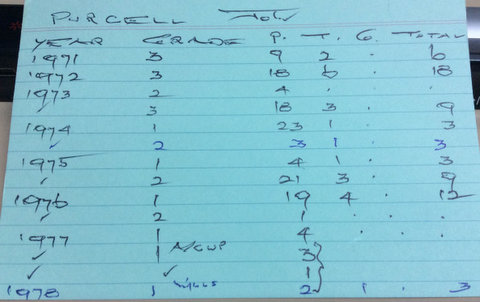 PURCELL Tony
YEAR GRADE P. T. G. TOTAL
1971 3 9 2 . 6
1972 3 18 6 . 18
1973 2 4 . . .
✓ 3 18 3 . 9
1974 1 23 1 . 3
✓ 2 3 1 . 3
1975 1 4 1 . 3
✓ 2 21 3 . 9
1976 1 19 4 . 12
✓ 2 1 . . .
1977 1 4 . . .
✓ 1 A/CUP 3
✓ ✓ 1
1978 1 2 1 . 3